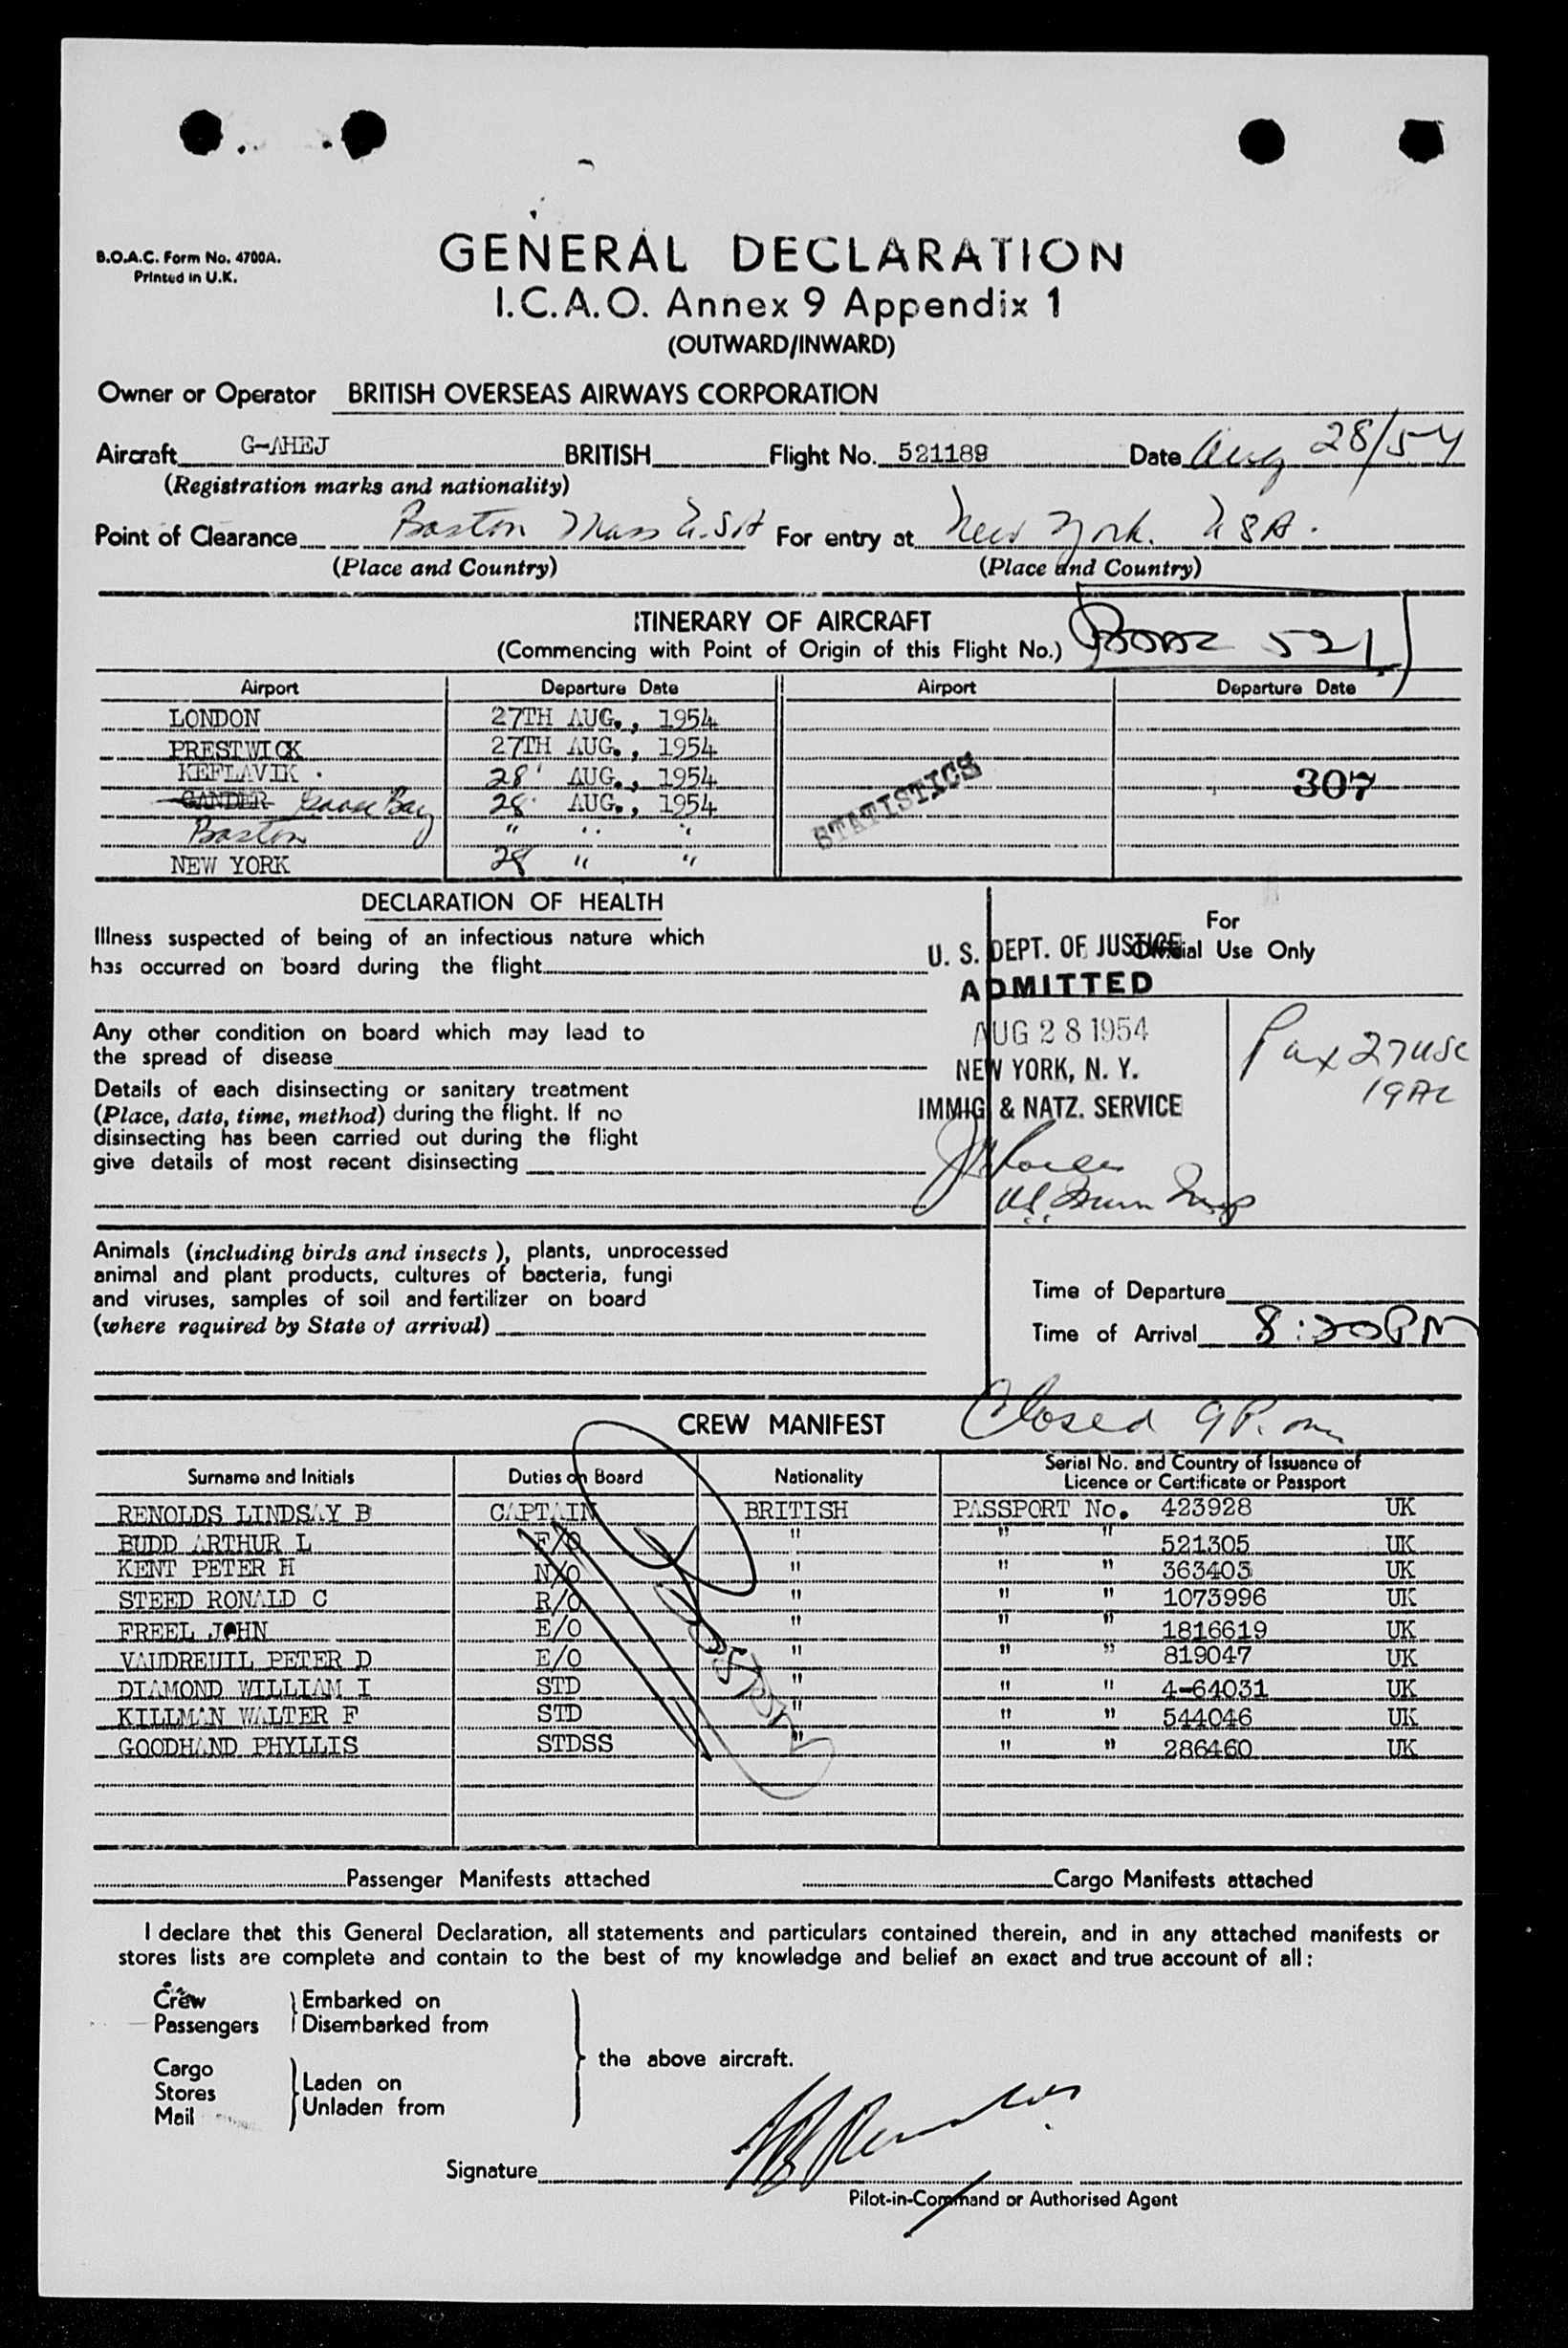 B.O.A.C. Form No. 4700A.
Printed in U.K.
GENERAL DECLARATION
I.C.A.O. Annex 9 Appendix 1
(OUTWARD/INWARD)
Owner or Operator BRITISH OVERSEAS AIRWAYS CORPORATION
Aircraft G-AHEJ BRITISH Flight No. 521189 Date Aug 28/54
(Registration marks and nationality)
Point of Clearance Boston Mass U.S.A For entry at New York. USA.
(Place and Country) (Place and Country)
ITINERARY OF AIRCRAFT
(Commencing with Point of Origin of this Flight No.) BOAC 521
Airport Departure Date Airport Departure Date
LONDON 27TH AUG., 1954
PRESTWICK 27TH AUG., 1954
KEFLAVIK . 28' AUG., 1954
GANDER Goose Bay 28 AUG., 1954
Boston " " "
NEW YORK 28 " "
STATISTICS
307
DECLARATION OF HEALTH
Illness suspected of being of an infectious nature which
has occurred on board during the flight
Any other condition on board which may lead to
the spread of disease
Details of each disinsecting or sanitary treatment
(Place, date, time, method) during the flight. If no
disinsecting has been carried out during the flight
give details of most recent disinsecting
For
Official Use Only
U. S. DEPT. OF JUSTICE
ADMITTED
AUG 28 1954
NEW YORK, N. Y.
IMMIG. & NATZ. SERVICE
Pax 27 USC
19 AL
Animals (including birds and insects), plants, unprocessed
animal and plant products, cultures of bacteria, fungi
and viruses, samples of soil and fertilizer on board
(where required by State of arrival)
Time of Departure
Time of Arrival 8:20 PM
Closed 9 P.m
CREW MANIFEST
Surname and Initials Duties on Board Nationality Serial No. and Country of Issuance of
Licence or Certificate or Passport
RENOLDS LINDSAY B CAPTAIN BRITISH PASSPORT No. 423928 UK
BUDD ARTHUR L F/O " " " 521305 UK
KENT PETER H N/O " " " 363403 UK
STEED RONALD C R/O " " " 1073996 UK
FREEL JOHN E/O " " " 1816619 UK
VAUDREUIL PETER D E/O " " " 819047 UK
DIAMOND WILLIAM I STD " " " 4-64031 UK
KILLMAN WALTER F STD " " " 544046 UK
GOODHAND PHYLLIS STDSS " " " 286460 UK
Passenger Manifests attached Cargo Manifests attached
I declare that this General Declaration, all statements and particulars contained therein, and in any attached manifests or
stores lists are complete and contain to the best of my knowledge and belief an exact and true account of all:
Crew Embarked on
Passengers Disembarked from
the above aircraft.
Cargo
Stores Laden on
Mail Unladen from
Signature
Pilot-in-Command or Authorised Agent